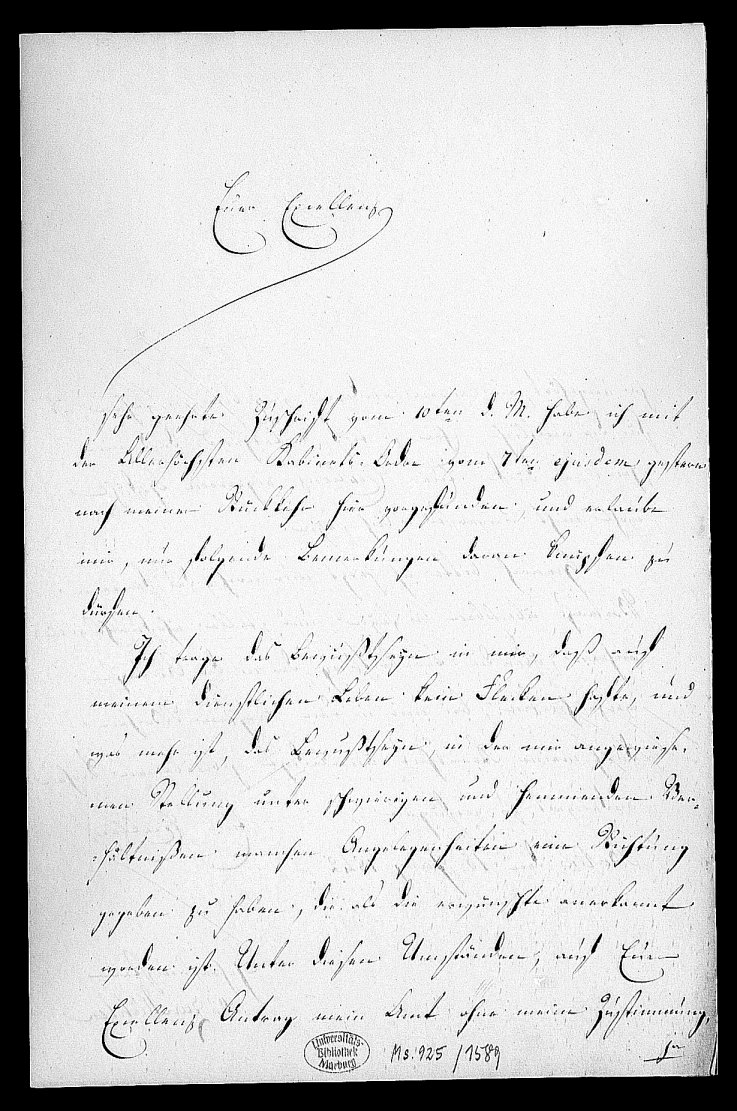 Euer Excellenz
sehr geehrte Zuschrift vom 10ten d. M. habe ich mit
der Allerhöchsten Kabinets-Ordre vom 7ten ejusdem gestern
nach meiner Rückkehr hier vorgefunden, und erlaube
mir, nur folgende Bemerkungen daran knüpfen zu
dürfen.
Ich trage das Bewußtseyn in mir, daß auf
meinem dienstlichen Leben kein Flecken hafte, und
was mehr ist, das Bewußtseyn in der mir angewiese-
nen Stellung unter schwierigen und hemmenden Ver-
hältnißen manchen Angelegenheiten eine Richtung
gegeben zu haben, die als die erwünschte anerkannt
worden ist. Unter diesen Umständen, auf Euer
Excellenz Antrag mein Amt ohne meine Zustimmung,
Universitäts-
Bibliothek
Marburg
Ms. 925/1589